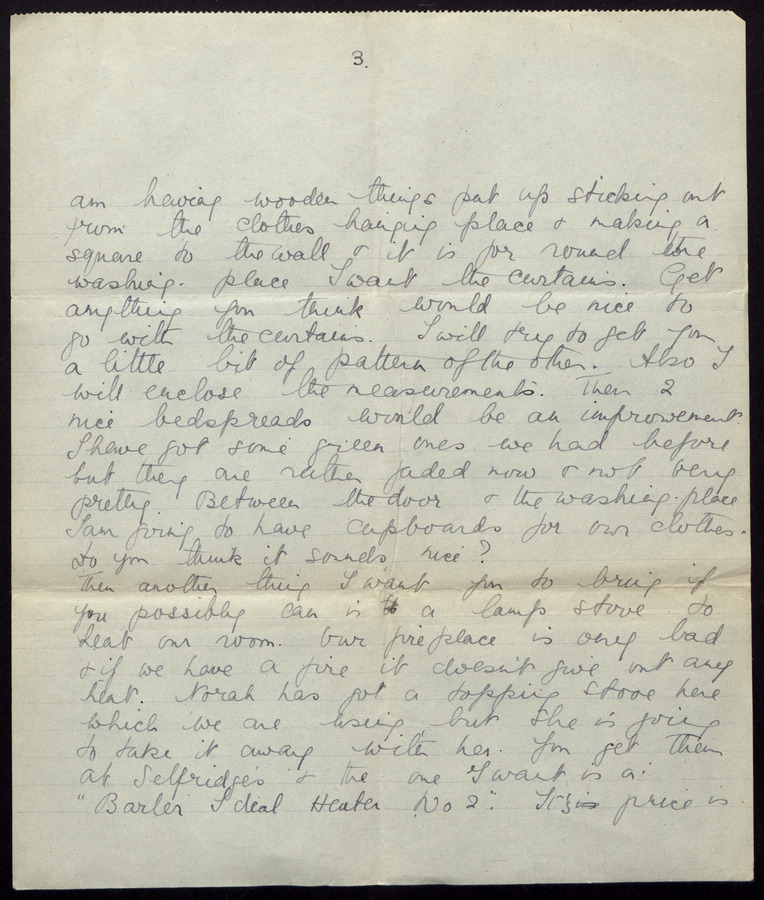 3.
am having wooden things put up sticking out
from the clothes hanging place & making a
square to the wall & it is for round the
washing-place I want the curtains. Get
anything you think would be nice to
go with the curtains. I will try to get you
a little bit of pattern of the other. Also I
will enclose the measurements. Then 2
nice bedspreads would be an improvement.
I have got some green ones we had before
but they are rather faded now & not very
pretty. Between the door & the washing-place
I am going to have cupboards for our clothes.
Do you think it sounds nice?
Then another thing I want you to bring if
you possibly can is a lamp stove to
heat our room. Our fireplace is very bad
& if we have a fire it doesn't give out any
heat. Norah has got a topping stove here
which we are using, but she is going
to take it away with her. You get them
at Selfridges & the one I want is a:
"Barler Ideal Heater No 2". Its price is